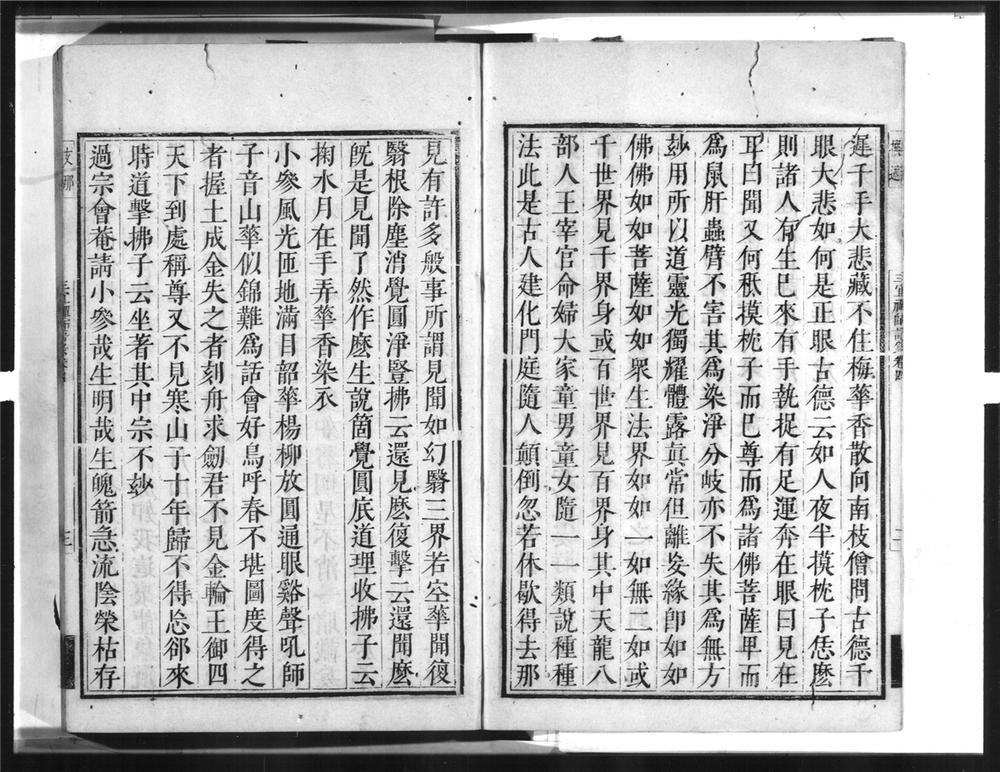 遲千手大悲藏不住梅華香散向南枝僧問古德千
眼大悲如何是正眼古德云如人夜半摸枕子恁麽
則諸人有生已來有手執捉有足運奔在眼曰見在
耳曰聞又何秪摸枕子而已尊而爲諸佛菩薩卑而
爲鼠肝蟲臂不害其爲染淨分岐亦不失其爲無方
玅用所以道靈光獨耀體露真常但離妄緣卽如如
佛佛如如菩薩如如衆生法界如如一如無二如或
千世界見千界身或百世界見百界身其中天龍八
部人王宰官命婦大家童男童女隨一一類說種種
法此是古人建化門庭隨人顛倒忽若休歇得去那
見有許多般事所謂見聞如幻翳三界若空華聞復
翳根除塵消覺圓淨豎拂云還見麽復擊云還聞麽
旣是見聞了然作麽生說箇覺圓底道理收拂子云
掬水月在手弄華香染衣
小參風光匝地滿目韶華楊柳放圓通眼谿聲吼師
子音山華似錦難爲話會好鳥呼春不堪圖度得之
者握土成金失之者刻舟求劒君不見金輪王御四
天下到處稱尊又不見寒山子十年歸不得忘郤來
時道擊拂子云坐著其中宗不玅
過宗會菴請小參哉生明哉生魄箭急流陰榮枯存